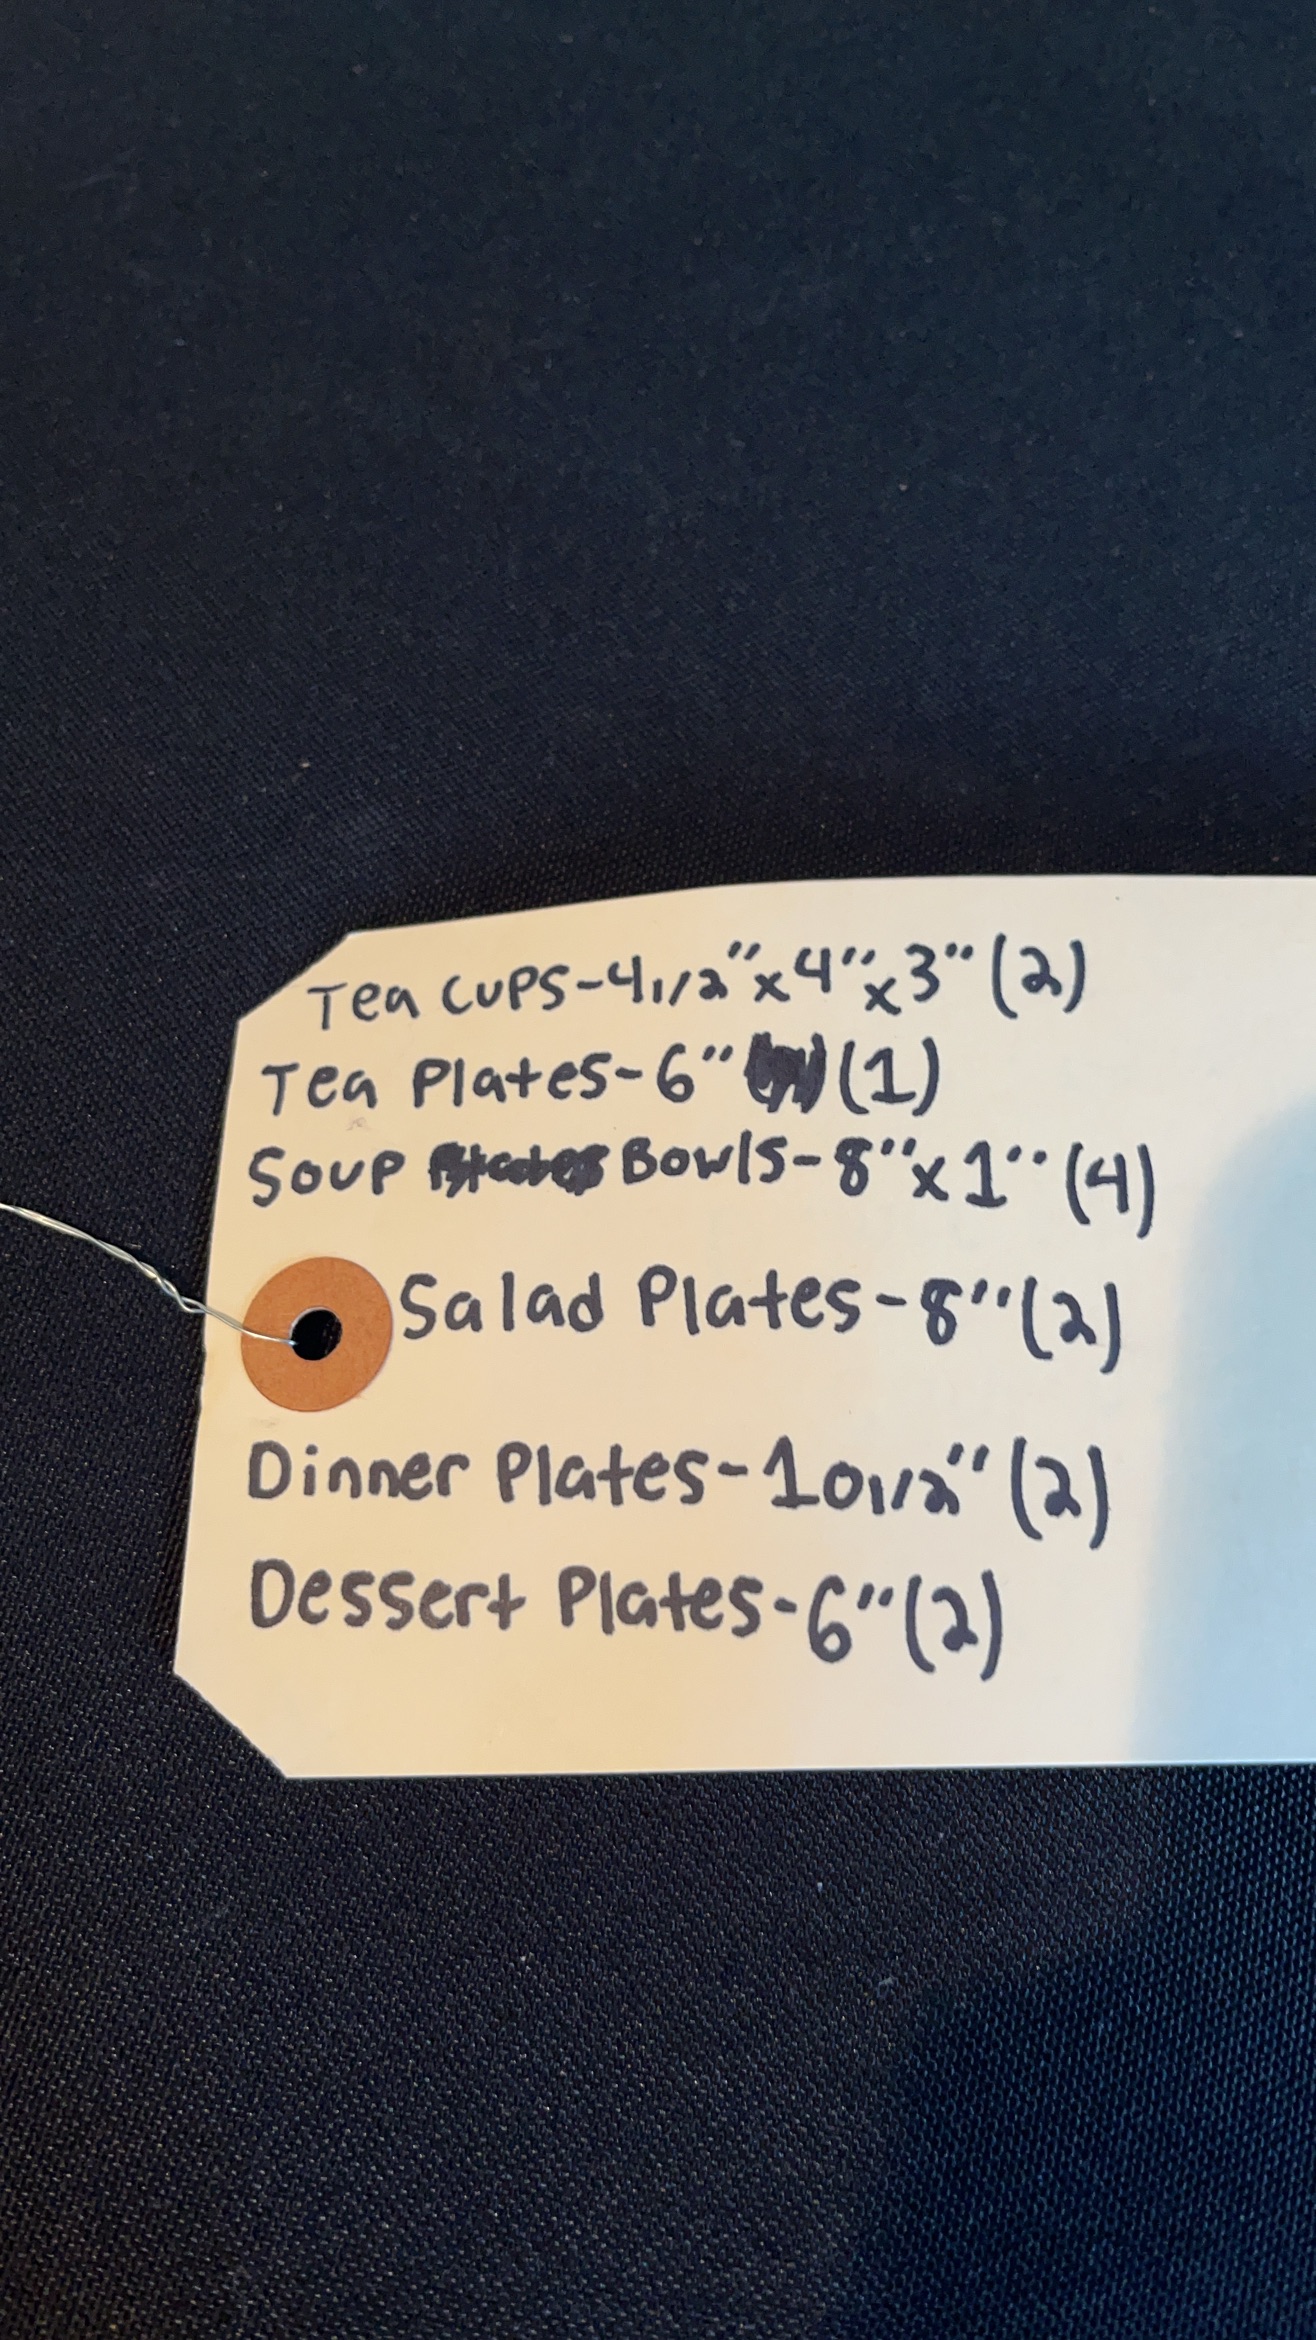 Tea Cups-4 1/2"x4"x3" (2)
Tea Plates-6" (1)
Soup Bowls-8"x1" (4)
Salad Plates-8" (2)
Dinner Plates-10 1/2" (2)
Dessert Plates-6" (2)